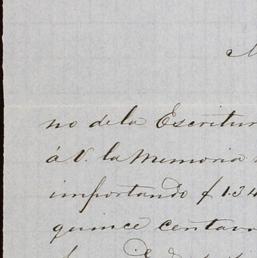 no de la Escritur
á V. la Memoria
importando $ 1.34
quince centavo